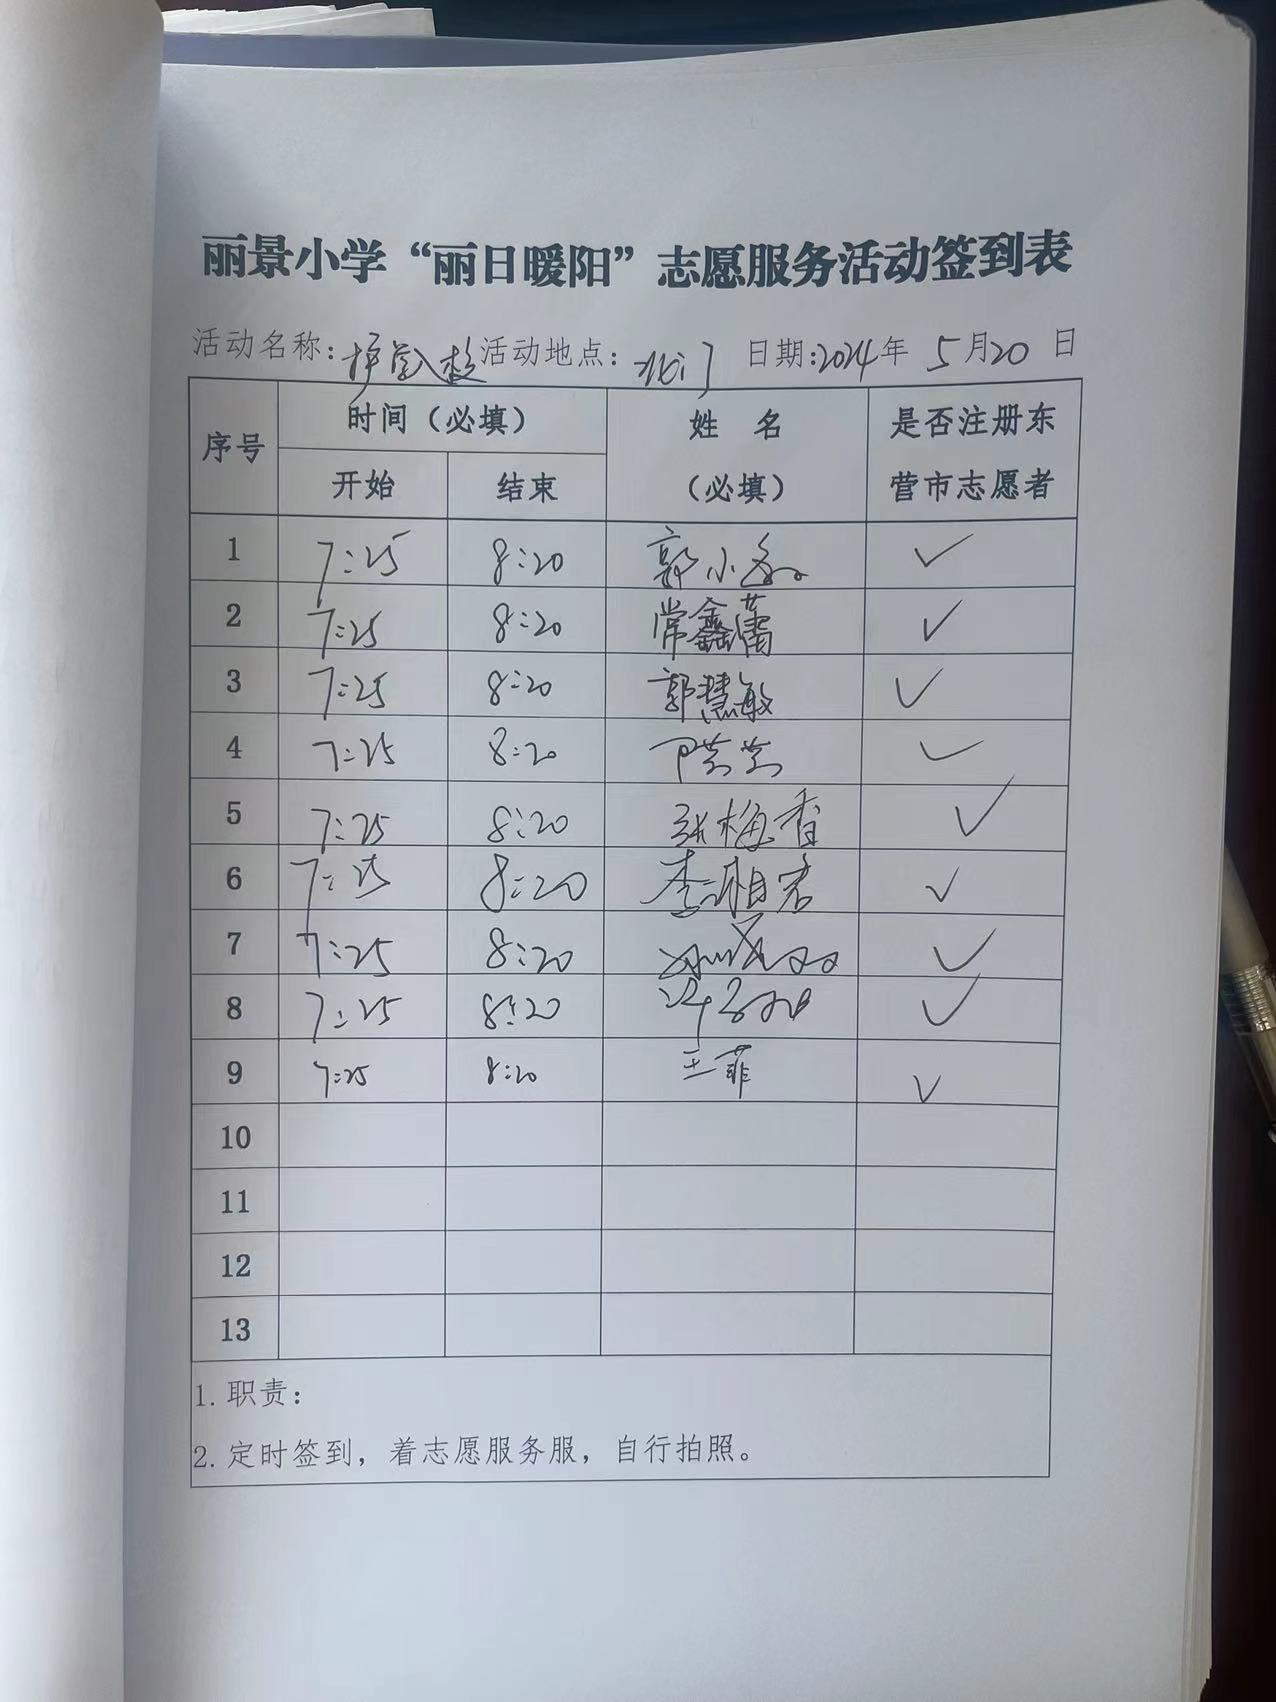 丽景小学“丽日暖阳”志愿服务活动签到表
活动名称:护学入校 活动地点:北门 日期:2024年 5月20 日
序号 时间（必填） 姓 名（必填） 是否注册东营市志愿者
开始 结束
1 7:25 8:20 郭小 ✓
2 7:25 8:20 常鑫蕾 ✓
3 7:25 8:20 郭慧敏 ✓
4 7:25 8:20 ✓
5 7:25 8:20 张梅香 ✓
6 7:25 8:20 李湘君 ✓
7 7:25 8:20 ✓
8 7:25 8:20 ✓
9 7:25 8:20 王菲 ✓
10
11
12
13
1. 职责:
2. 定时签到，着志愿服务服，自行拍照。